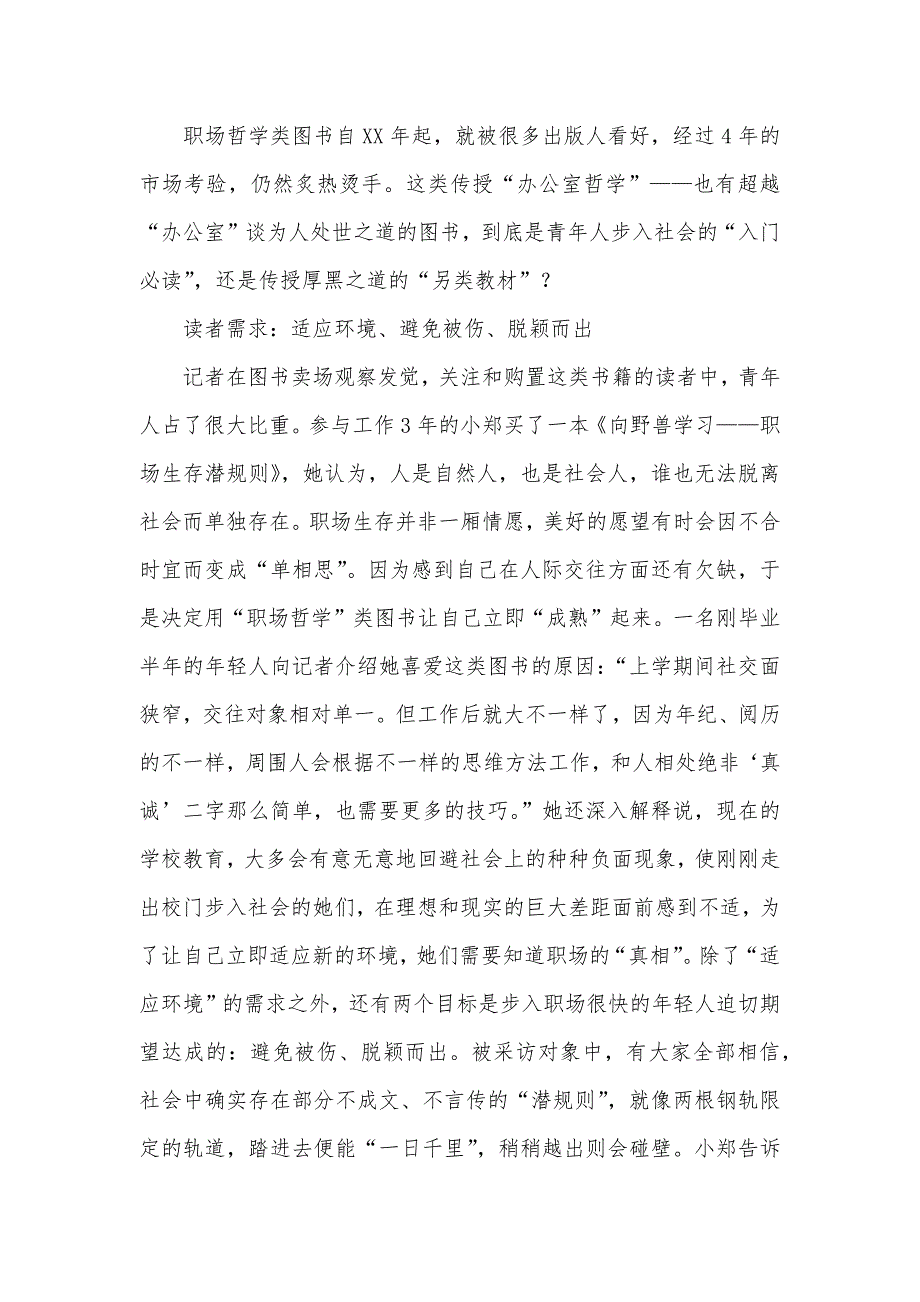 职场哲学类图书自 XX 年起，就被很多出版人看好，经过 4 年的
市场考验，仍然炙热烫手。这类传授“办公室哲学”——也有超越
“办公室”谈为人处世之道的图书，到底是青年人步入社会的“入门
必读”，还是传授厚黑之道的“另类教材”？
读者需求：适应环境、避免被伤、脱颖而出
记者在图书卖场观察发觉，关注和购置这类书籍的读者中，青年
人占了很大比重。参与工作 3 年的小郑买了一本《向野兽学习——职
场生存潜规则》，她认为，人是自然人，也是社会人，谁也无法脱离
社会而单独存在。职场生存并非一厢情愿，美好的愿望有时会因不合
时宜而变成“单相思”。因为感到自己在人际交往方面还有欠缺，于
是决定用“职场哲学”类图书让自己立即“成熟”起来。一名刚毕业
半年的年轻人向记者介绍她喜爱这类图书的原因：“上学期间社交面
狭窄，交往对象相对单一。但工作后就大不一样了，因为年纪、阅历
的不一样，周围人会根据不一样的思维方法工作，和人相处绝非‘真
诚’二字那么简单，也需要更多的技巧。”她还深入解释说，现在的
学校教育，大多会有意无意地回避社会上的种种负面现象，使刚刚走
出校门步入社会的她们，在理想和现实的巨大差距面前感到不适，为
了让自己立即适应新的环境，她们需要知道职场的“真相”。除了“适
应环境”的需求之外，还有两个目标是步入职场很快的年轻人迫切期
望达成的：避免被伤、脱颖而出。被采访对象中，有大家全部相信，
社会中确实存在部分不成文、不言传的“潜规则”，就像两根钢轨限
定的轨道，踏进去便能“一日千里”，稍稍越出则会碰壁。小郑告诉